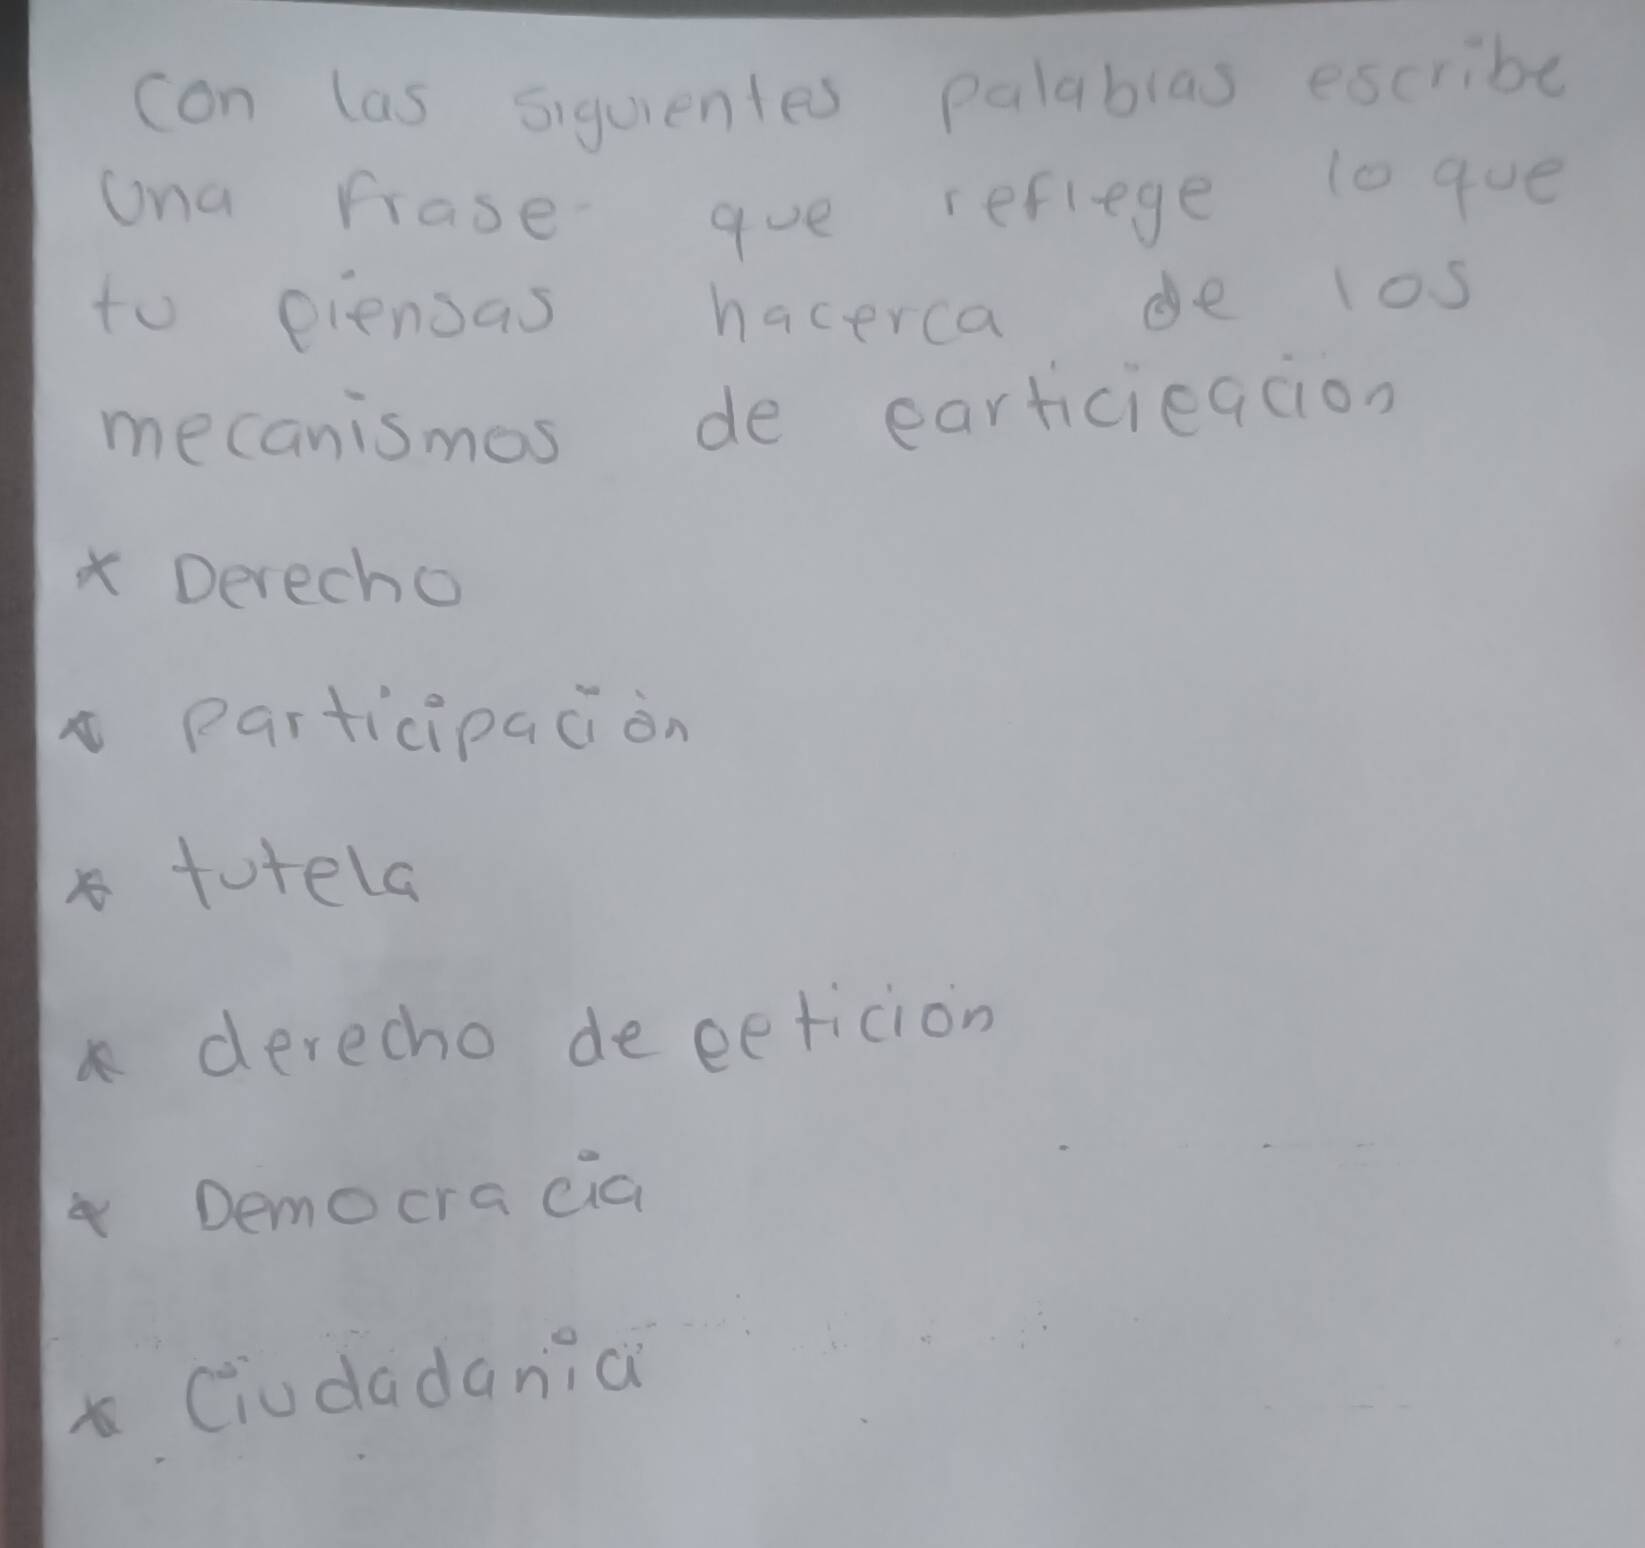 Con las siguientes palabras escribe
una frase que reflege lo que
tu piensas hacerca de los
mecanismos de participacion
* Derecho
* Participación
* tutela
* derecho de petición
* Democracia
* Ciudadania